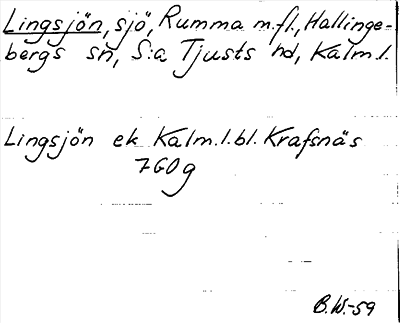 Lingsjön, sjö, Rumma m.fl., Hallinge-
bergs sn, S:a Tjusts hd, Kalm.l.
Lingsjön ek Kalm.l.bl. Krafsnäs
7GOg
B.W.-59